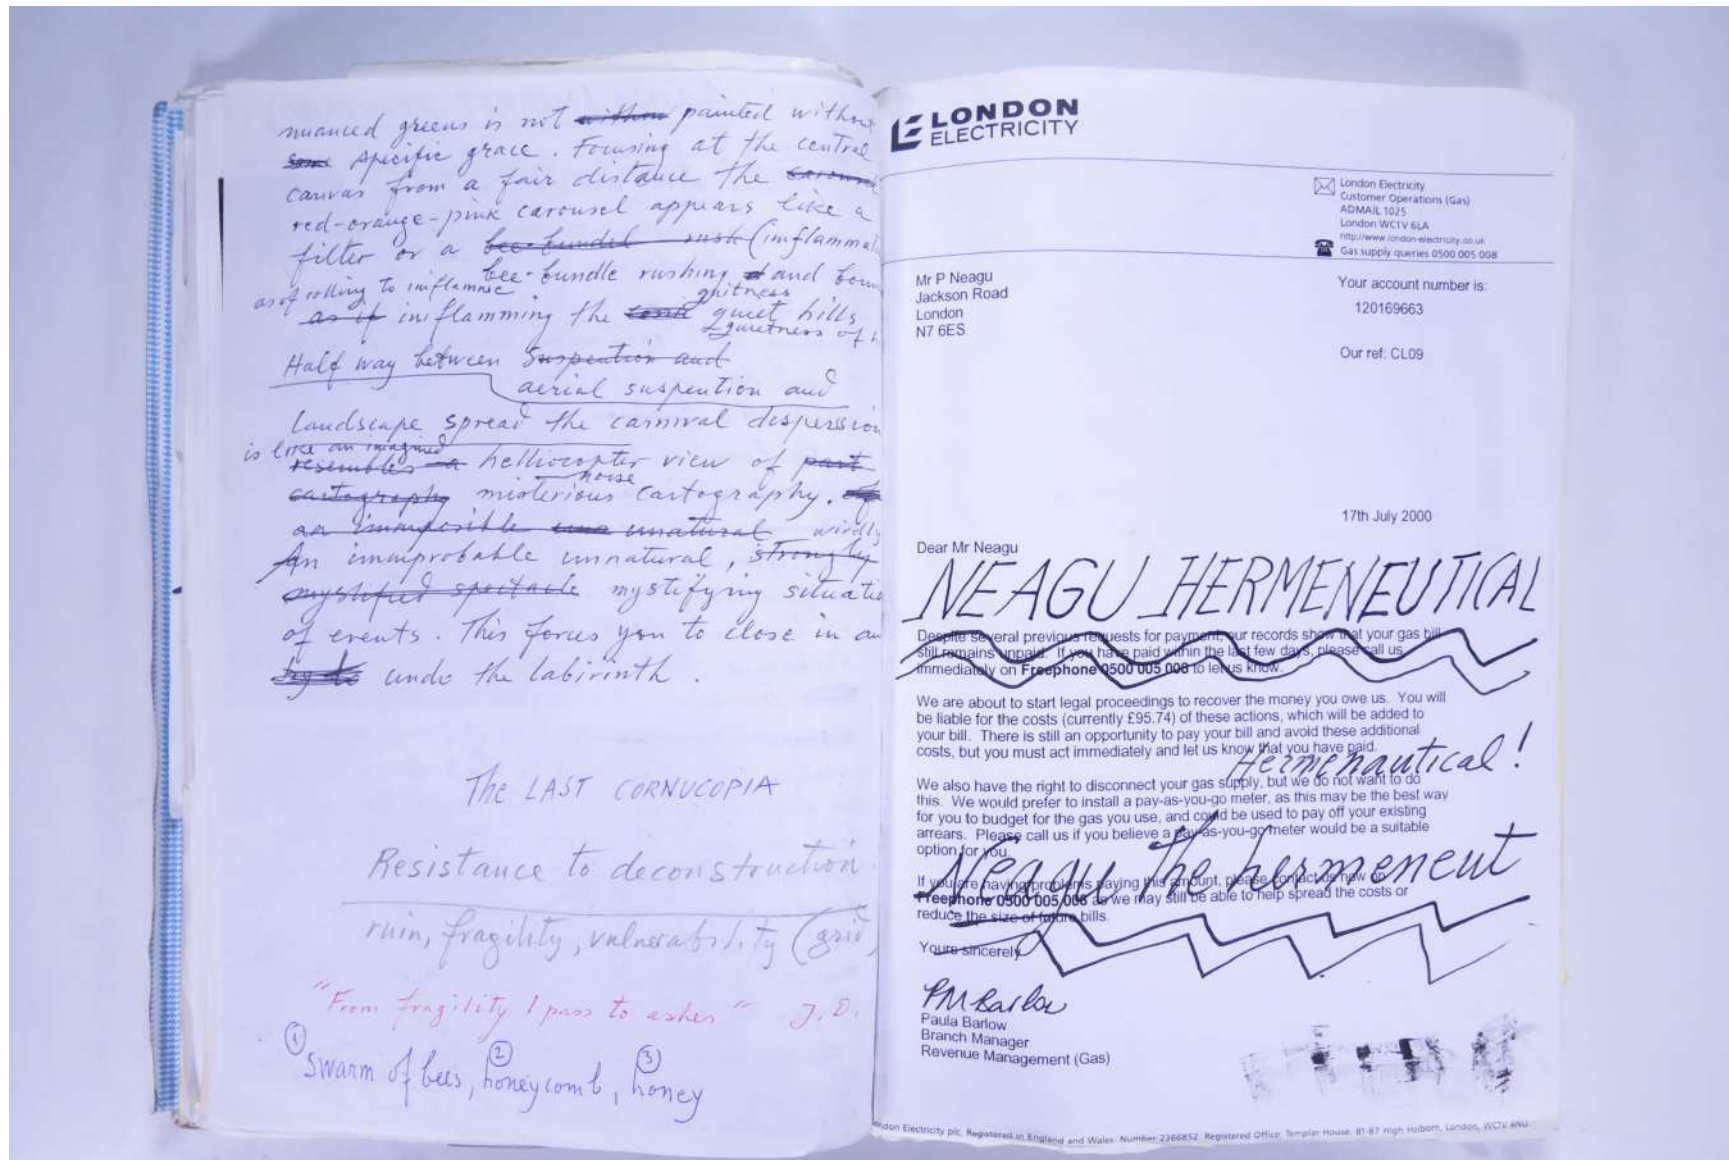 nuanced greens is not painted without
some specific grace. Focusing at the central
canvas from a fair distance the carousel
red-orange-pink carousel appears like a
filter or a bee-bundel rush (inflamma
bee-bundle rushing and
as of rolling to inflamme
quitness
as if iniflamming the quiet hills
quietness of
Half way between Suspention and
aerial suspention and
Landscape spread the carnival dispersion
is like an imagined
resembles a helliocopter view of part
noise
cartography misterious cartography.
an immposible unnatural wirdly
An imauprobable unnatural, strongly
mystified spectacle mystifying situatio
of events. This forces you to close in an
try to undo the labirinth.
The LAST CORNUCOPIA
Resistance to deconstruction.
ruin, fragility, vulnerability (grid,
"From fragility I pass to ashes" J.D.
① ② ③
swarm of bees, honeycomb, honey
LONDON
ELECTRICITY
London Electricity
Customer Operations (Gas)
ADMAIL 1025
London WC1V 6LA
http://www.london-electricity.co.uk
Gas supply queries 0500 005 008
Mr P Neagu
Jackson Road
London
N7 6ES
Your account number is:
120169663
Our ref: CL09
17th July 2000
Dear Mr Neagu
NEAGU HERMENEUTICAL
Despite several previous requests for payment, our records show that your gas bill
still remains unpaid. If you have paid within the last few days, please call us
immediately on Freephone 0500 005 008 to let us know.
We are about to start legal proceedings to recover the money you owe us. You will
be liable for the costs (currently £95.74) of these actions, which will be added to
your bill. There is still an opportunity to pay your bill and avoid these additional
costs, but you must act immediately and let us know that you have paid.
Hermenautical!
We also have the right to disconnect your gas supply, but we do not want to do
this. We would prefer to install a pay-as-you-go meter, as this may be the best way
for you to budget for the gas you use, and could be used to pay off your existing
arrears. Please call us if you believe a pay-as-you-go meter would be a suitable
option for you.
Neagu The hermeneut
If you are having problems paying this amount, please contact us now on
Freephone 0500 005 008 as we may still be able to help spread the costs or
reduce the size of future bills.
Yours sincerely
PM Barlow
Paula Barlow
Branch Manager
Revenue Management (Gas)
don Electricity plc. Registered in England and Wales. Number 2366852. Registered Office: Templar House, 81-87 High Holborn, London, WC1V 6NU